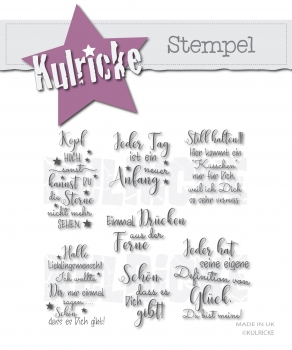 Kulricke
Stempel
Kopf
HOCH
sonst
kannst DU
die Sterne
nicht mehr
SEHEN
Jeder Tag
ist ein
neuer
Anfang
Still halten!!
Hier kommt ein
"Küsschen"
nur für Dich,
weil ich Dich
so sehr vermiss
Einmal Drücken
aus der
Ferne
Hallo
Lieblingsmensch!
Ich wollte
Dir nur einmal
sagen
Schön,
dass es Dich gibt!
Schön,
dass es
Dich
gibt!
Jeder hat
seine eigene
Definition von
Glück.
Du bist meins!
KULRICKE
MADE IN UK
©KULRICKE